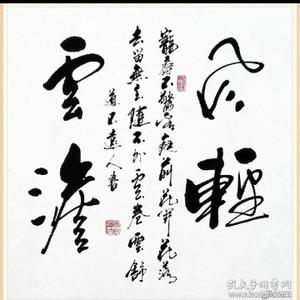 风輕
寵辱不驚看庭前花开花落
去留無意隨天外雲卷雲舒
道不遠人書
雲澹
孔夫子旧书网